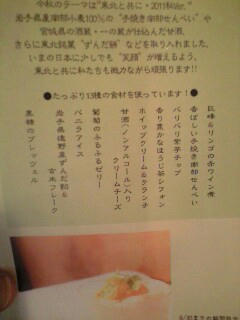 今秋のテーマは"東北と共に・2011秋Ver."
岩手県産南部小麦100%の"手焼き南部せんべい"や
宮城県の酒蔵・一の蔵が仕込んだ甘酒、
さらに東北銘菓"ずんだ餅"などを取り入れました。
いまの日本に少しでも"笑顔"が増えるよう、
東北と共に私たちも微力ながら頑張ります!!
●たっぷり13種の食材を使っています!●
巨峰&リンゴの赤ワイン煮
香ばしい手焼き南部せんべい
パリパリ紫芋チップ
香り豊かなほうじ茶シフォン
ホイップクリーム&クランチ
甘酒(ノンアルコール)入り
クリームチーズ
葡萄のふるふるゼリー
バニラアイス
岩手県遠野産ずんだ餡&
古米フレーク
黒糖のブレッツェル